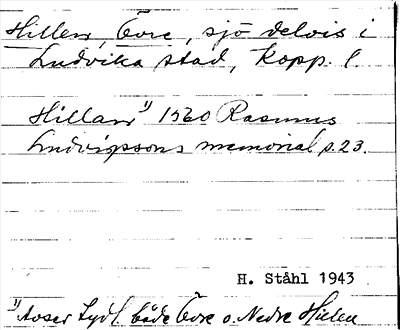 Hillen, Övre, sjö delvis i
Ludvika stad, Kopp. l.
Hillan¹⁾ 1560 Rasmus
Ludvigssons memorial s. 23.
H. Ståhl 1943
¹⁾ Avser tydl. både Övre o. Nedre Hillen